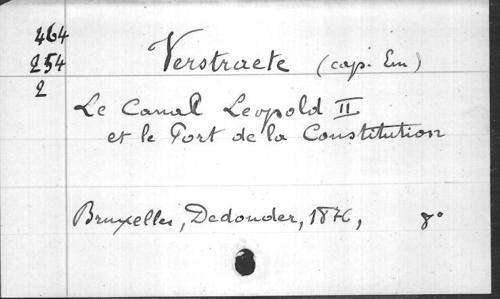 464
254
2
Verstraete (cap. Em)
Le Canal Leopold II
et le Port de la Constitution
Bruxelles, Dedoncker, 1876, 8°